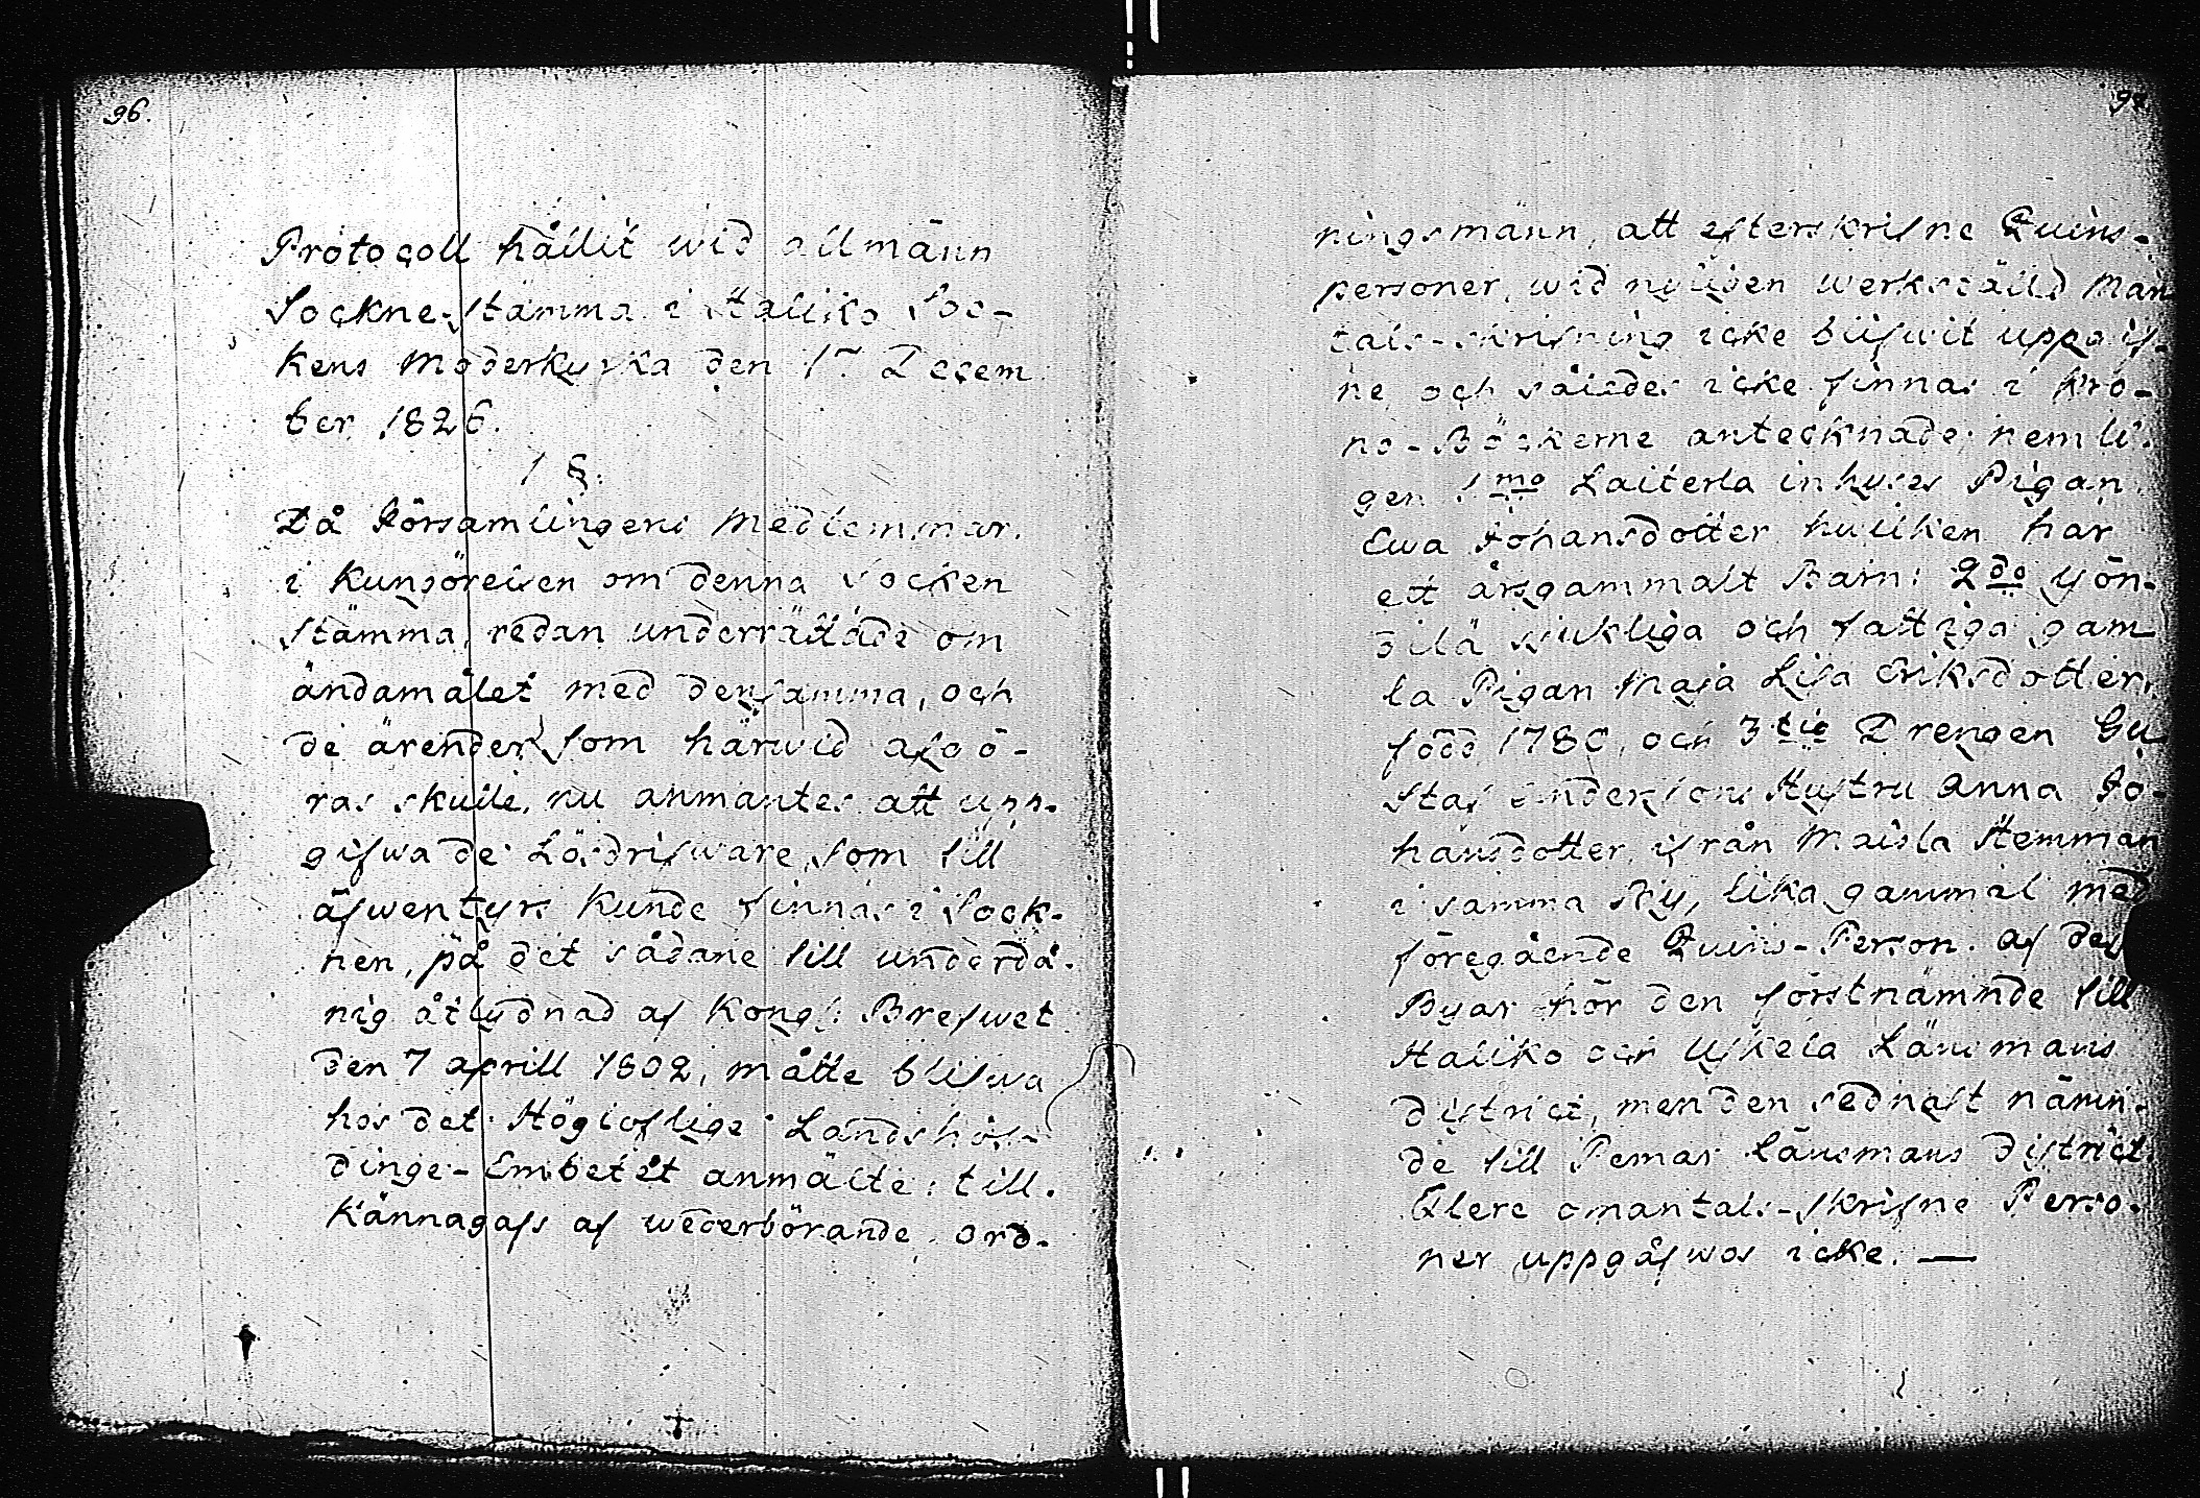 96.
Protocoll hållit wid allmänn
Sockne-stämma i Haliko Soc-
kens Moderkyrka den 17 Decem
ber 1826.
1 §.
Då Församlingens Medlemmar.
i Kungörelsen om denna Socken
stämma, redan underrättade om
ändamålet med densamma, och
de ärender, som härwid afgö-
ras skulle, nu anmantes att upp-
gifwa de Lösdrifware, som till
äfwentyrs kunde finnas i Sock-
nen, på det sådane till underdå-
nig åtlydnad af Kongl. Brefwet
den 7 aprill 1802, måtte blifwa
hos det Höglofliga Landshöf-
dinge-Embetet anmälte: till.
Kännagafs af wederbörande ord-
97
ningsmänn, att efterskrifne Quins-
personer, wid nyligen werkställd Man
tals-skrifning icke blifwit uppgif-
ne och således icke finnas i Kro-
no-Böckerne antecknade; nemli-
gen 1mo Laiterla inhyses Pigan
Ewa Johansdotter hvilken har
ett årsgammalt Barn: 2do Yön-
zilä sjukliga och fattiga gam
la Pigan Maja Lisa Eriksdotter,
född 1780, och 3tio Drengen Gu
staf Anderssons Hustru Anna Jo-
hansdotter, ifrån Maisla Hemman
i samma By, lika gammal med
föregående Quins-Person. Af des
Byar hör den förstnämnde till
Haliko och Uskela Länsmans
district, men den sednast nämn-
de till Pemar Länsmans District
Flere omantals-skrifne Perso-
ner uppgåfwos icke. —